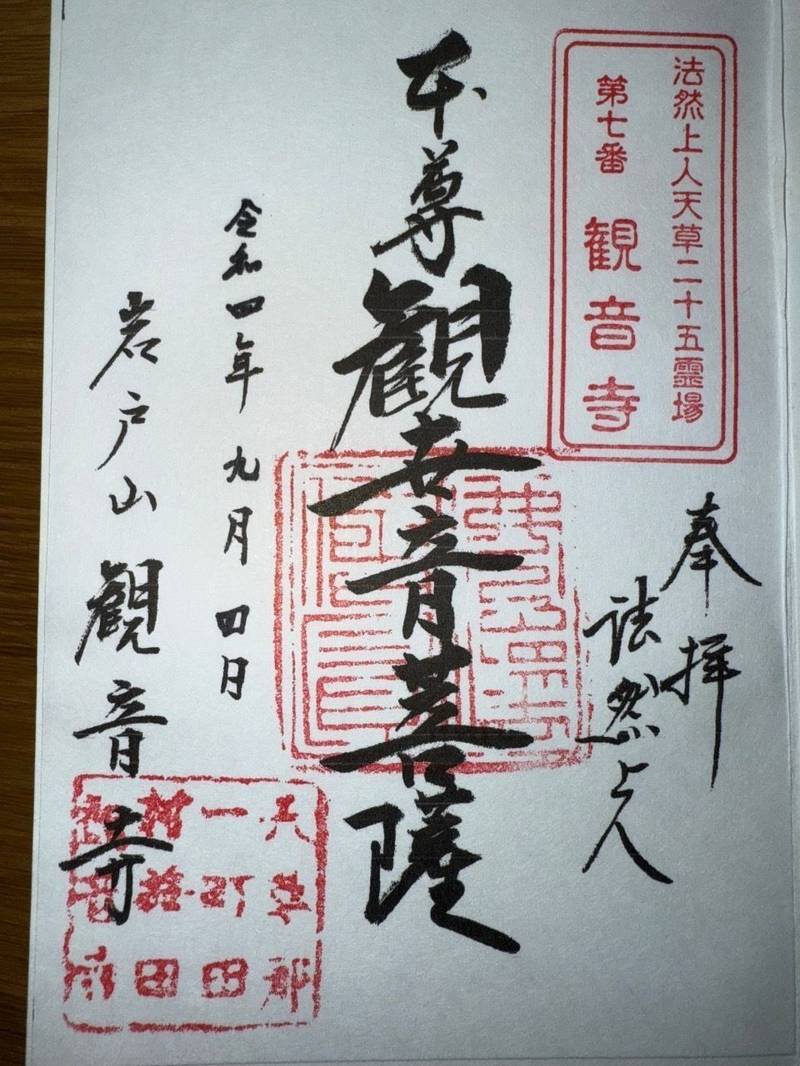 法然上人天草二十五霊場
第七番 観音寺
奉拝
法然上人
本尊 観世音菩薩
令和四年 九月 四日
岩戸山 観音寺